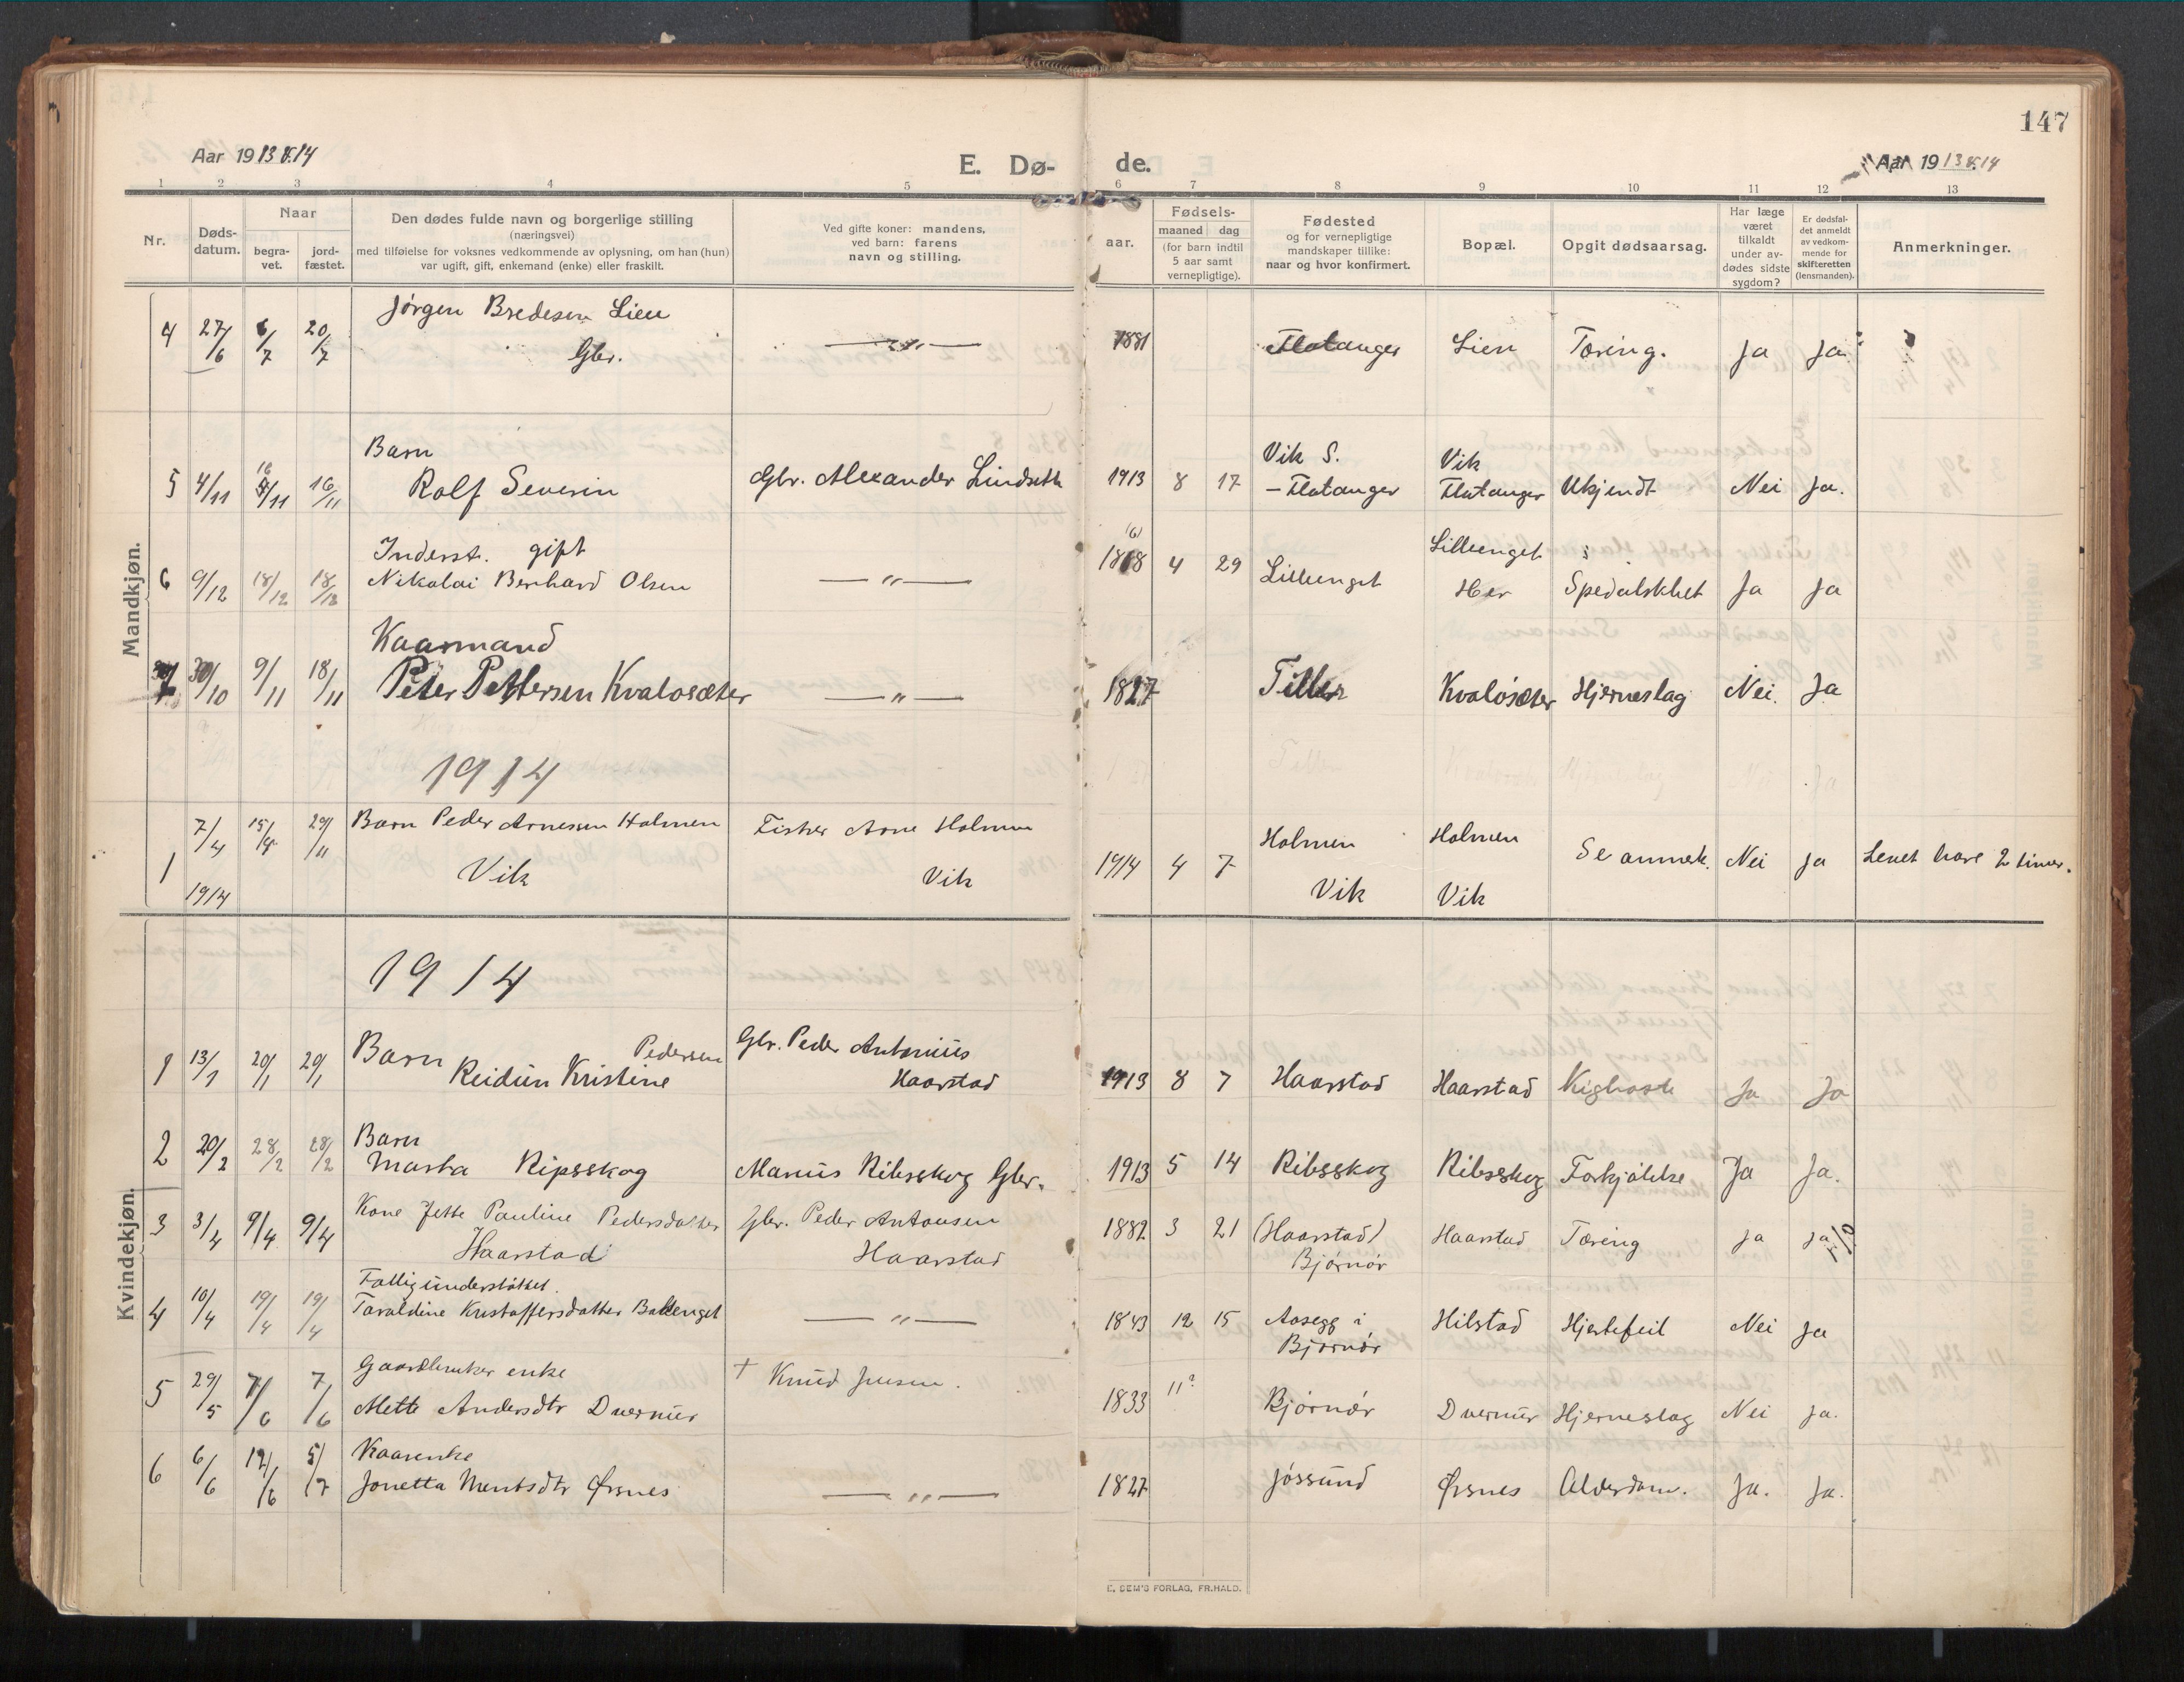 147
Aar 1913 & 14
E. Dø-de.
Aar 1913 & 14
1 2 3 4 5 6 7 8 9 10 11 12 13
Nr.
Døds-datum.
Naar
begra-vet.
jord-fæstet.
Den dødes fulde navn og borgerlige stilling
(næringsvei)
med tilføielse for voksnes vedkommende av oplysning, om han (hun)
var ugift, gift, enkemand (enke) eller fraskilt.
Ved gifte koner: mandens,
ved barn: farens
navn og stilling.
aar.
Fødsels-
maaned dag
(for barn indtil
5 aar samt
vernepligtige).
Fødested
og for vernepligtige
mandskaper tillike:
naar og hvor konfirmert.
Bopæl.
Opgit dødsaarsag.
Har læge
været
tilkaldt
under av-
dødes sidste
sygdom?
Er dødsfal-
det anmeldt
av vedkom-
mende for
skifteretten
(lensmanden).
Anmerkninger.
Mandkjøn.
Jørgen Bredesen Lien
4 27/6 6/7 20/7 Gbr. — " — 1881 Flatanger Lien Tæring. Ja Ja
Barn Vik S. Vik
5 4/11 16/11 16/11 Rolf Severin Gbr. Alexander Lindseth 1913 8 17 – Flatanger Flatanger Ukjendt Nei Ja.
Inderst. gift Lilleenget
6 9/12 18/12 18/12 Nikolai Bernhard Olsen — " — 1868 4 29 Lilleenget Her Spedalskhet Ja Ja
Kaarmand
7 30/10 9/11 18/11 Peter Pettersen Kvalosæter — " — 1827 Tiller Kvalosæter Hjerneslag Nei. Ja
1914
7/4 15/4 29/11 Barn Peder Arnesen Holmen Fisker Arne Holmen Holmen Holmen
1 1914 Vik Vik 1914 4 7 Vik Vik Se anmerk. Nei Ja Levet bare 2 timer.
Kvindekjøn.
1914
Barn Pedersen Gbr. Peder Antonius
1 13/1 20/1 20/1 Reidun Kristine Haarstad 1913 8 7 Haarstad Haarstad Kighoste Ja Ja
Barn
2 20/2 28/2 28/2 Marta Ripsskog Marius Ribsskog Gbr. 1913 5 14 Ribsskog Ribsskog Forkjølelse Ja Ja.
3 3/4 9/4 9/4 Kone Jette Pauline Pedersdatter Gbr. Peder Antonsen 1882 3 21 (Haarstad) Haarstad Tæring Ja Ja
Haarstad Haarstad Bjørnør
Fattigunderstøttet.
4 10/4 19/4 19/4 Taraldine Kristoffersdatter Bakenget — " — 1843 12 15 Aasegg i Hilstad Hjertefeil Nei Ja
Bjørnør
Gaardbruker enke † Knud Jensen.
5 29/5 7/6 7/6 Mette Andersdtr Duernur 1833 11? Bjørnør Duernur Hjerneslag Nei Ja.
Kaarenke
6 6/6 12/6 5/7 Jonetta Mentsdtr Ørsnes — " — 1827 Jøssund Ørsnes Alderdom. Ja. Ja.
E. SEM'S FORLAG, FR.HALD.